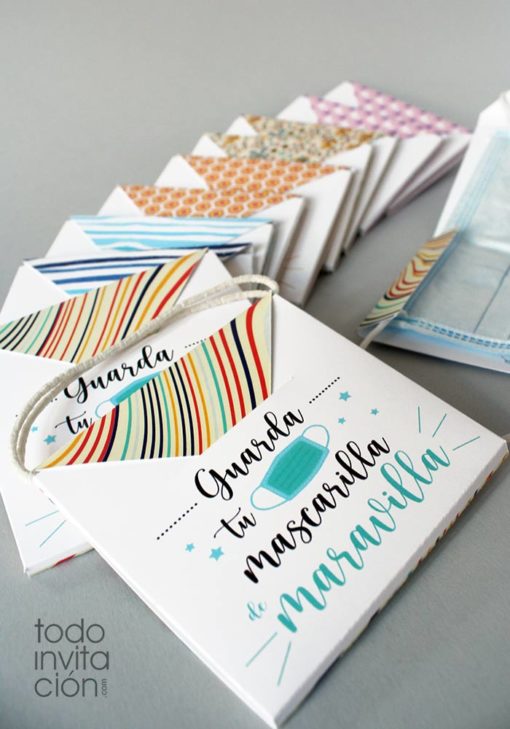 Guarda
tu
Guarda
tu
mascarilla
de maravilla
todo
invita
ción.com